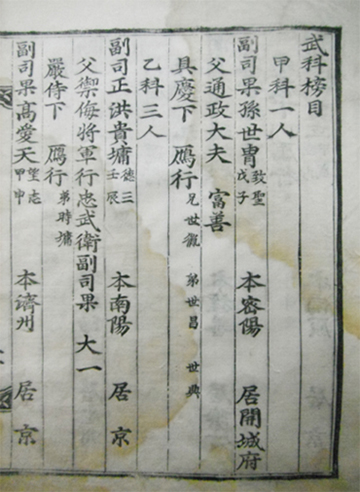 武科榜目
甲科一人
副司果孫世冑 敦聖 戊子 本密陽 居開城府
父通政大夫 富善
具慶下 鴈行 兄世 弟世昌 世典
乙科三人
副司正洪貴墉 德三 壬辰 本南陽 居京
父禦侮將軍行忠武衛副司果 大一
嚴侍下 鴈行 弟時墉
副司果高愛天 望志 甲申 本濟州 居京